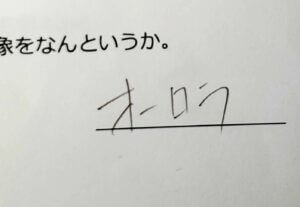 象をなんというか。
オーロラ